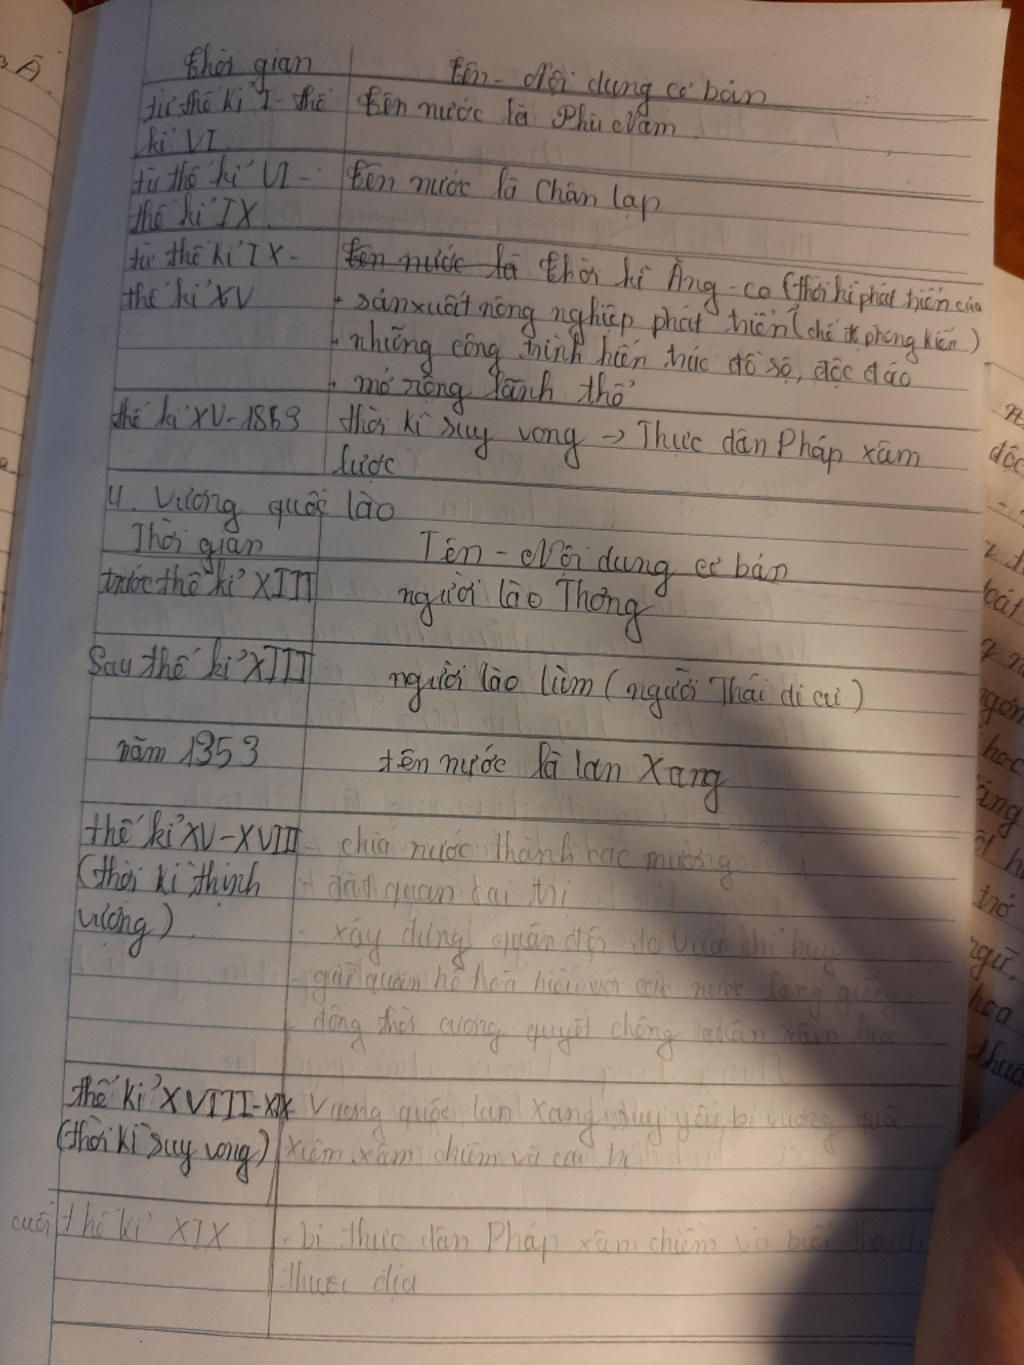 Thời gian | tên - Nội dung cơ bản
từ thế kỉ I - thế | tên nước là Phù Nam.
kỉ VI
từ thế kỉ VI - | tên nước là Chân lạp
thế kỉ IX.
từ thế kỉ IX - | thời kì Ăng-co (thời kì phát triển của
thế kỉ XV | + sản xuất nông nghiệp phát triển (chế độ phong kiến)
+ những công trình kiến trúc đồ sộ, độc đáo
+ mở rộng lãnh thổ
thế kỉ XV - 1863 | thời kì suy vong → Thực dân Pháp xâm
lược
4. Vương quốc lào
Thời gian | Tên - Nội dung cơ bản
trước thế kỉ XIII | người lào Thơng
Sau thế kỉ XIII | người lào lùm (người Thái di cư)
năm 1353 | tên nước là lan Xang
thế kỉ XV - XVII | - chia nước thành các mường
(thời kì thịnh | + đặt quan cai trị
vượng) | - xây dựng quân đội do vua chỉ huy
- giữ quan hệ hoà hiếu với các nước láng giềng
đồng thời cương quyết chống quân xâm lược
thế kỉ XVIII - XIX | Vương quốc lan Xang suy yếu, bị vương quốc
(thời kì suy vong) | Xiêm xâm chiếm và cai trị
cuối thế kỉ XIX | - bị thực dân Pháp xâm chiếm và biến thành
thuộc địa